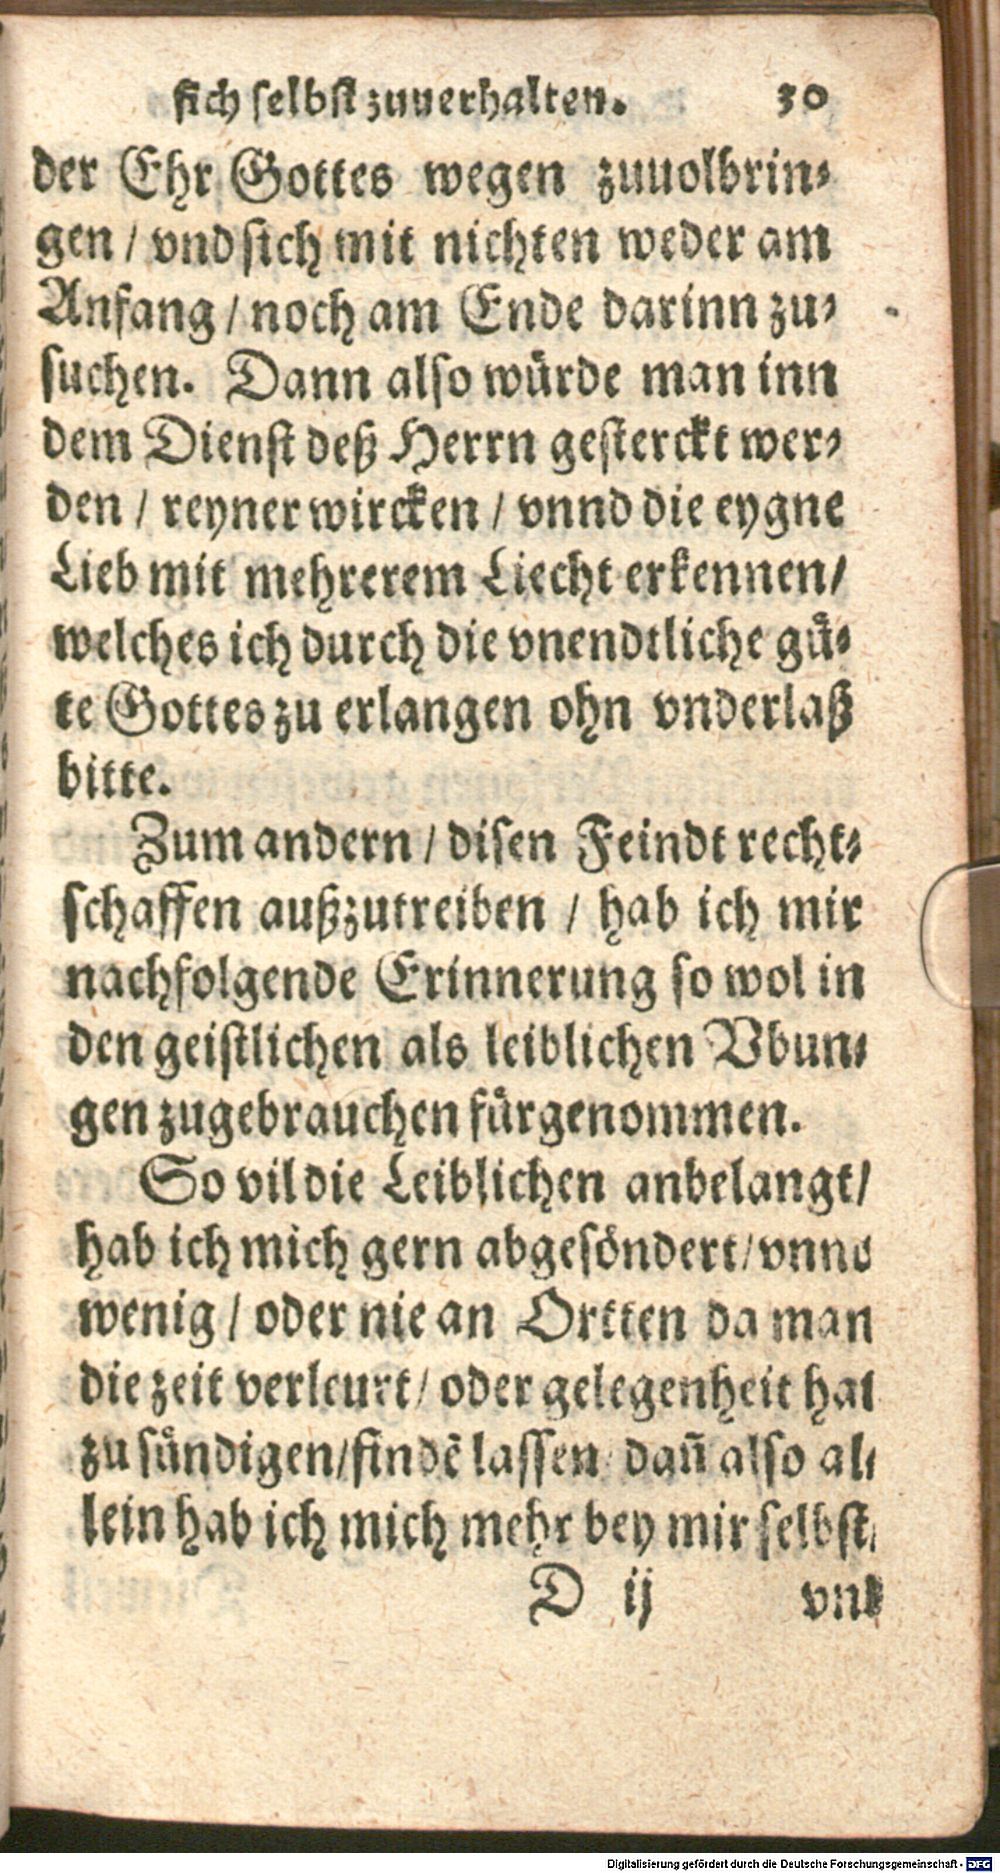 sich selbst zuuerhalten. 30
der Ehr Gottes wegen zuuolbrin⸗
gen / vnd sich mit nichten weder am
Anfang / noch am Ende darinn zu⸗
suchen. Dann also würde man inn
dem Dienst deß Herrn gesterckt wer⸗
den / reyner wircken / vnnd die eygne
Lieb mit mehrerem Liecht erkennen/
welches ich durch die vnendtliche guͤ⸗
te Gottes zu erlangen ohn vnderlaß
bitte.
Zum andern / disen Feindt recht⸗
schaffen außzutreiben / hab ich mir
nachfolgende Erinnerung so wol in
den geistlichen als leiblichen Vbun⸗
gen zugebrauchen fürgenommen.
So vil die Leiblichen anbelangt/
hab ich mich gern abgesöndert/ vnnd
wenig / oder nie an Ortten da man
die zeit verleurt/ oder gelegenheit hat
zu suͤndigen/findẽ lassen dañ also al⸗
lein hab ich mich mehr bey mir selbst,
D ij vnd
Digitalisierung gefördert durch die Deutsche Forschungsgemeinschaft - DFG